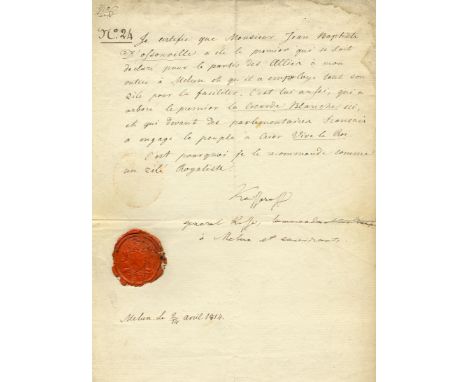 No. 24 Je certifie que Monsieur Jean Baptiste
D'ossonville a été le premier qui se soit
declaré pour le partie des Alliés à mon
entrée à Melun et qu'il a employé tout son
zèle pour la faciliter. C'est lui aussi, qui a
arboré le premier la Cocarde Blanche ici,
et qui devant des parlementaires français
a engagé le peuple à crier Vive le Roi.
C'est pourquoi je le recommande comme
un zélé Royaliste.
général
à Melun et environs.
Melun le 2/14 avril 1814.